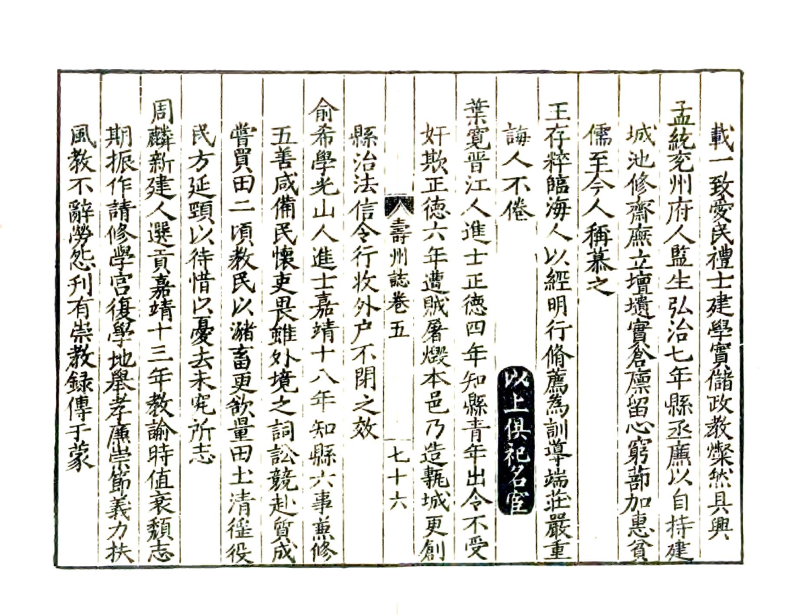 載一致愛民禮士建學實儲政教燦然具興
孟統兖州府人監生弘治七年縣丞廉以自持建
城池修齋廡立壇壝實倉廪留心窮蔀加惠貧
儒至今人稱慕之
王存粹臨海人以經明行脩薦為訓導端莊嚴重
誨人不倦
以上俱祀名宦
葉寛晋江人進士正德四年知縣青年出令不受
奸欺正德六年遭賊屠燬本邑乃造甎城更創
壽州誌卷五
七十六
縣治法信令行收外户不閉之效
俞希學光山人進士嘉靖十八年知縣六事兼修
五善咸備民懷吏畏雖外境之詞訟競赴質成
嘗買田二頃教民以瀦畜更欲量田土清徭役
民方延頸以待惜以憂去未究所志
周麟新建人選貢嘉靖十三年教諭時值衰頽志
期振作請修學宫復學地舉孝廉崇節義力扶
風教不辭勞怨刋有崇教録傳于蒙